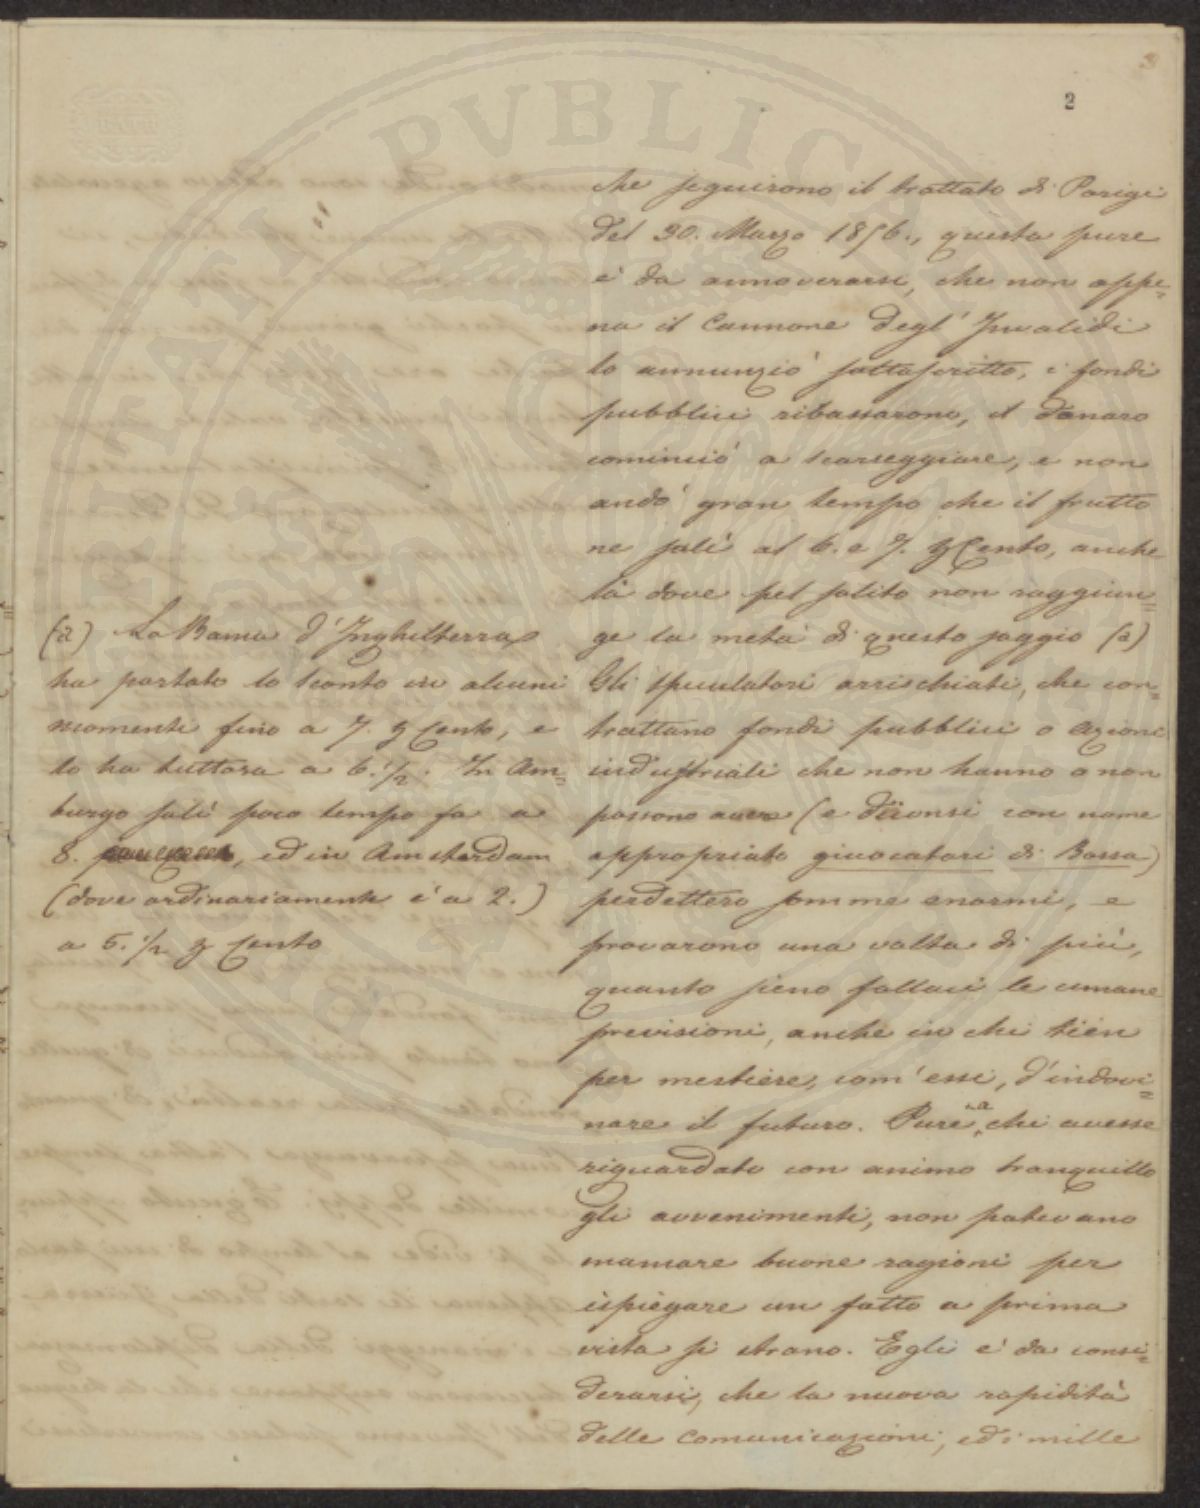 2
che seguirono il trattato di Parigi
del 30. Marzo 1856., questa pure
è da annoverarsi, che non appe=
na il Cannone degl' Invalidi
lo annunziò sottoscritto, i fondi
pubblici ribassarono, il danaro
cominciò a scarseggiare, e non
andò gran tempo che il frutto
ne salì al 6. e 7. p Cento, anche
là dove pel solito non raggiun=
ge la metà di questo saggio (a)
Gli speculatori arrischiati, che con=
trattano fondi pubblici o azioni
industriali che non hanno o non
possono avere (e diconsi con nome
appropriato giuocatori di Borsa)
perdettero somme enormi, e
provarono una volta di più,
quanto sieno fallaci le umane
previsioni, anche in chi tien
per mestiere, com' essi, d'indovi=
nare il futuro. Pure a chi avesse
riguardato con animo tranquillo
gli avvenimenti, non potevano
mancare buone ragioni per
ispiegare un fatto a prima
vista sì strano. Egli è da consi=
derarsi, che la nuova rapidità
delle comunicazioni, ed i mille
(a) La Banca d'Inghilterra
ha portato lo sconto in alcuni
momenti fino a 7. p Cento, e
lo ha tuttora a 6. 1/2. In Am=
burgo salì poco tempo fa a
8. , ed in Amsterdam
(dove ordinariamente è a 2.)
a 5. 1/2 p Cento
PVBLIC